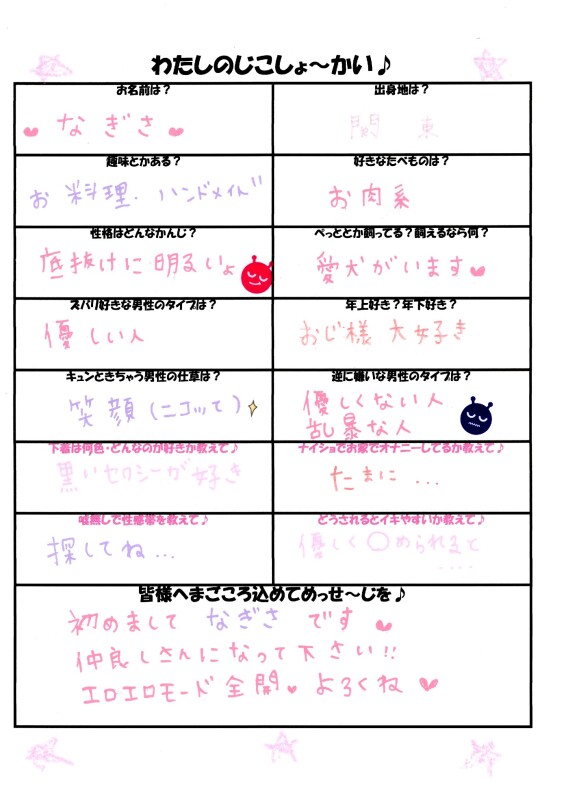 わたしのじこしょ～かい♪
お名前は？
なぎさ
出身地は？
関東
趣味とかある？
お料理、ハンドメイド
好きなたべものは？
お肉系
性格はどんなかんじ？
底抜けに明るいよ
ぺっととか飼ってる？飼えるなら何？
愛犬がいます
ズバリ好きな男性のタイプは？
優しい人
年上好き？年下好き？
おじ様大好き
キュンときちゃう男性の仕草は？
笑顔(ニコッて)
逆に嫌いな男性のタイプは？
優しくない人
乱暴な人
下着は何色・どんなのが好きか教えて♪
黒いセクシーが好き
ナイショでお家でオナニーしてるか教えて♪
たまに...
嘘無しで性感帯を教えて♪
探してね...
どうされるとイキやすいか教えて♪
優しく〇められると
....
皆様へまごころ込めてめっせ～じを♪
初めまして なぎさ です
仲良しさんになって下さい!!
エロエロモード全開 よろくね